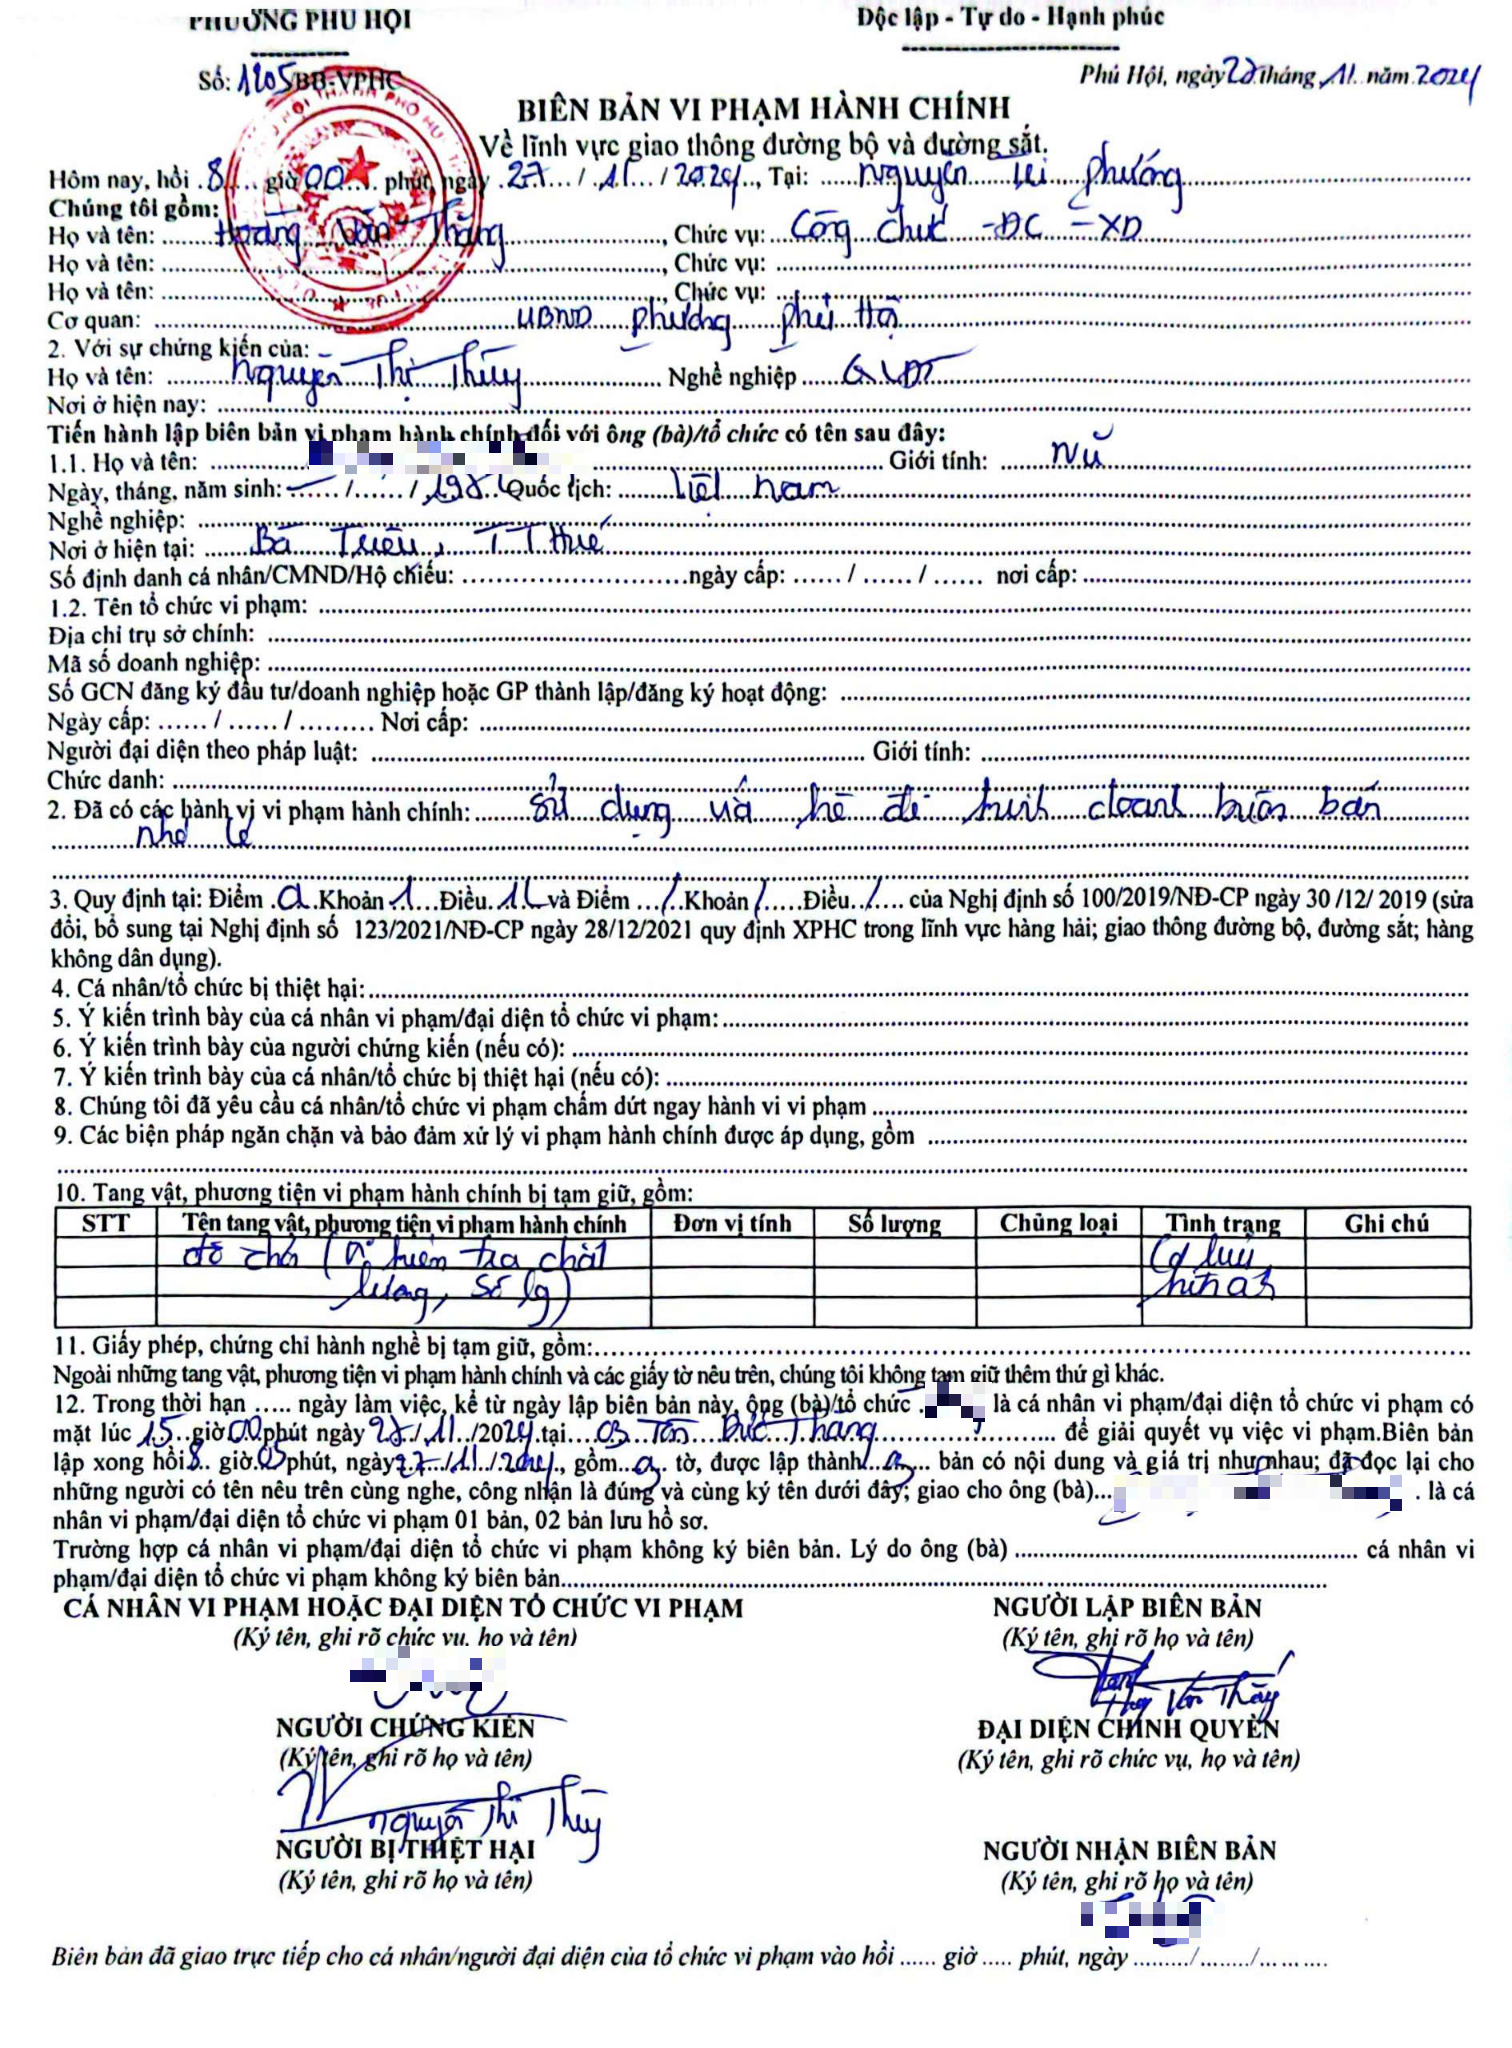 PHƯỜNG PHÚ HỘI
Độc lập - Tự do - Hạnh phúc
Số: 1205/BB-VPHC
Phú Hội, ngày 27 tháng 11 năm 2024
BIÊN BẢN VI PHẠM HÀNH CHÍNH
Về lĩnh vực giao thông đường bộ và đường sắt.
Hôm nay, hồi 8 giờ 00 phút, ngày 27 / 11 / 2024, Tại: Nguyễn Tri Phương
Chúng tôi gồm:
Họ và tên: Hoàng Văn Thắng, Chức vụ: Công chức - ĐC - XD
Họ và tên: ............, Chức vụ: ............
Họ và tên: ............, Chức vụ: ............
Cơ quan: UBND phường Phú Hội
2. Với sự chứng kiến của:
Họ và tên: Nguyễn Thị Thùy Nghề nghiệp
Nơi ở hiện nay: ............
Tiến hành lập biên bản vi phạm hành chính đối với ông (bà)/tổ chức có tên sau đây:
1.1. Họ và tên: ............ Giới tính: Nữ
Ngày, tháng, năm sinh: ...... / ...... / Quốc tịch: Việt Nam
Nghề nghiệp: ............
Nơi ở hiện tại: Bà Triệu, TT Huế
Số định danh cá nhân/CMND/Hộ chiếu: ............ ngày cấp: ...... / ...... / ...... nơi cấp: ............
1.2. Tên tổ chức vi phạm: ............
Địa chỉ trụ sở chính: ............
Mã số doanh nghiệp: ............
Số GCN đăng ký đầu tư/doanh nghiệp hoặc GP thành lập/đăng ký hoạt động: ............
Ngày cấp: ...... / ...... / ......... Nơi cấp: ............
Người đại diện theo pháp luật: ............ Giới tính: ............
Chức danh: ............
2. Đã có các hành vi vi phạm hành chính: sử dụng vỉa hè để kinh doanh buôn bán
nhỏ lẻ
3. Quy định tại: Điểm a Khoản 1 Điều 12 và Điểm / Khoản / Điều / của Nghị định số 100/2019/NĐ-CP ngày 30 /12/ 2019 (sửa
đổi, bổ sung tại Nghị định số 123/2021/NĐ-CP ngày 28/12/2021 quy định XPHC trong lĩnh vực hàng hải; giao thông đường bộ, đường sắt; hàng
không dân dụng).
4. Cá nhân/tổ chức bị thiệt hại: ............
5. Ý kiến trình bày của cá nhân vi phạm/đại diện tổ chức vi phạm: ............
6. Ý kiến trình bày của người chứng kiến (nếu có): ............
7. Ý kiến trình bày của cá nhân/tổ chức bị thiệt hại (nếu có): ............
8. Chúng tôi đã yêu cầu cá nhân/tổ chức vi phạm chấm dứt ngay hành vi vi phạm ............
9. Các biện pháp ngăn chặn và bảo đảm xử lý vi phạm hành chính được áp dụng, gồm ............
10. Tang vật, phương tiện vi phạm hành chính bị tạm giữ, gồm:
STT Tên tang vật, phương tiện vi phạm hành chính Đơn vị tính Số lượng Chủng loại Tình trạng Ghi chú
kiểm tra chất
lượng, số lg)
11. Giấy phép, chứng chỉ hành nghề bị tạm giữ, gồm: ............
Ngoài những tang vật, phương tiện vi phạm hành chính và các giấy tờ nêu trên, chúng tôi không tạm giữ thêm thứ gì khác.
12. Trong thời hạn ..... ngày làm việc, kể từ ngày lập biên bản này, ông (bà)/tổ chức là cá nhân vi phạm/đại diện tổ chức vi phạm có
mặt lúc 15 giờ 00 phút ngày 27/11/2024 tại 03 Tôn Đức Thắng để giải quyết vụ việc vi phạm.Biên bản
lập xong hồi 8 giờ 05 phút, ngày 27/11/2024, gồm tờ, được lập thành bản có nội dung và giá trị như nhau; đã đọc lại cho
những người có tên nêu trên cùng nghe, công nhận là đúng và cùng ký tên dưới đây; giao cho ông (bà) là cá
nhân vi phạm/đại diện tổ chức vi phạm 01 bản, 02 bản lưu hồ sơ.
Trường hợp cá nhân vi phạm/đại diện tổ chức vi phạm không ký biên bản. Lý do ông (bà) ............ cá nhân vi
phạm/đại diện tổ chức vi phạm không ký biên bản............
CÁ NHÂN VI PHẠM HOẶC ĐẠI DIỆN TỔ CHỨC VI PHẠM
(Ký tên, ghi rõ chức vụ, họ và tên)
NGƯỜI LẬP BIÊN BẢN
(Ký tên, ghi rõ họ và tên)
Hoàng Văn Thắng
NGƯỜI CHỨNG KIẾN
(Ký tên, ghi rõ họ và tên)
Nguyễn Thị Thùy
ĐẠI DIỆN CHÍNH QUYỀN
(Ký tên, ghi rõ chức vụ, họ và tên)
NGƯỜI BỊ THIỆT HẠI
(Ký tên, ghi rõ họ và tên)
NGƯỜI NHẬN BIÊN BẢN
(Ký tên, ghi rõ họ và tên)
Biên bản đã giao trực tiếp cho cá nhân/người đại diện của tổ chức vi phạm vào hồi ...... giờ ..... phút, ngày ........./......../..........